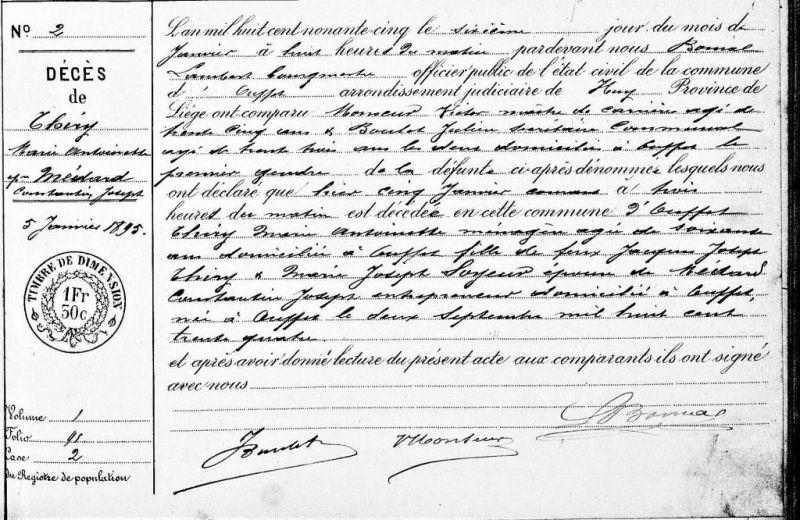 N° 2
DÉCÈS
de
Thiry
Marie Antoinette
épse Médard
Constantin Joseph
5 Janvier 1895.
TIMBRE DE DIMENSION
1 Fr
30c
Volume 1
Folio 91
Case 2
du Registre de population
L'an mil huit cent nonante-cinq le sixième jour du mois de
Janvier à huit heures du matin pardevant nous Bomal
Lambert bourgmestre officier public de l'état civil de la commune
d'Ouffet arrondissement judiciaire de Huy Province de
Liège ont comparu Monseur Victor maître de carrière agé de
trente cinq ans & Boulet Julien secrétaire communal
agé de trente huit ans les deux domiciliés à Ouffet le
premier gendre de la défunte ci-après dénommée lesquels nous
ont déclaré que hier cinq Janvier courant à trois
heures du matin est décédée en cette commune d'Ouffet
Thiry Marie Antoinette ménagère agée de soixante
ans domiciliée à Ouffet fille de feux Jacques Joseph
Thiry & Marie Joseph Soyeur épouse de Médard
Constantin Joseph entrepreneur domicilié à Ouffet,
née à Ouffet le deux Septembre mil huit cent
trente quatre.
et après avoir donné lecture du présent acte aux comparants ils ont signé
avec nous
LBomal
JBoulet VMonseur